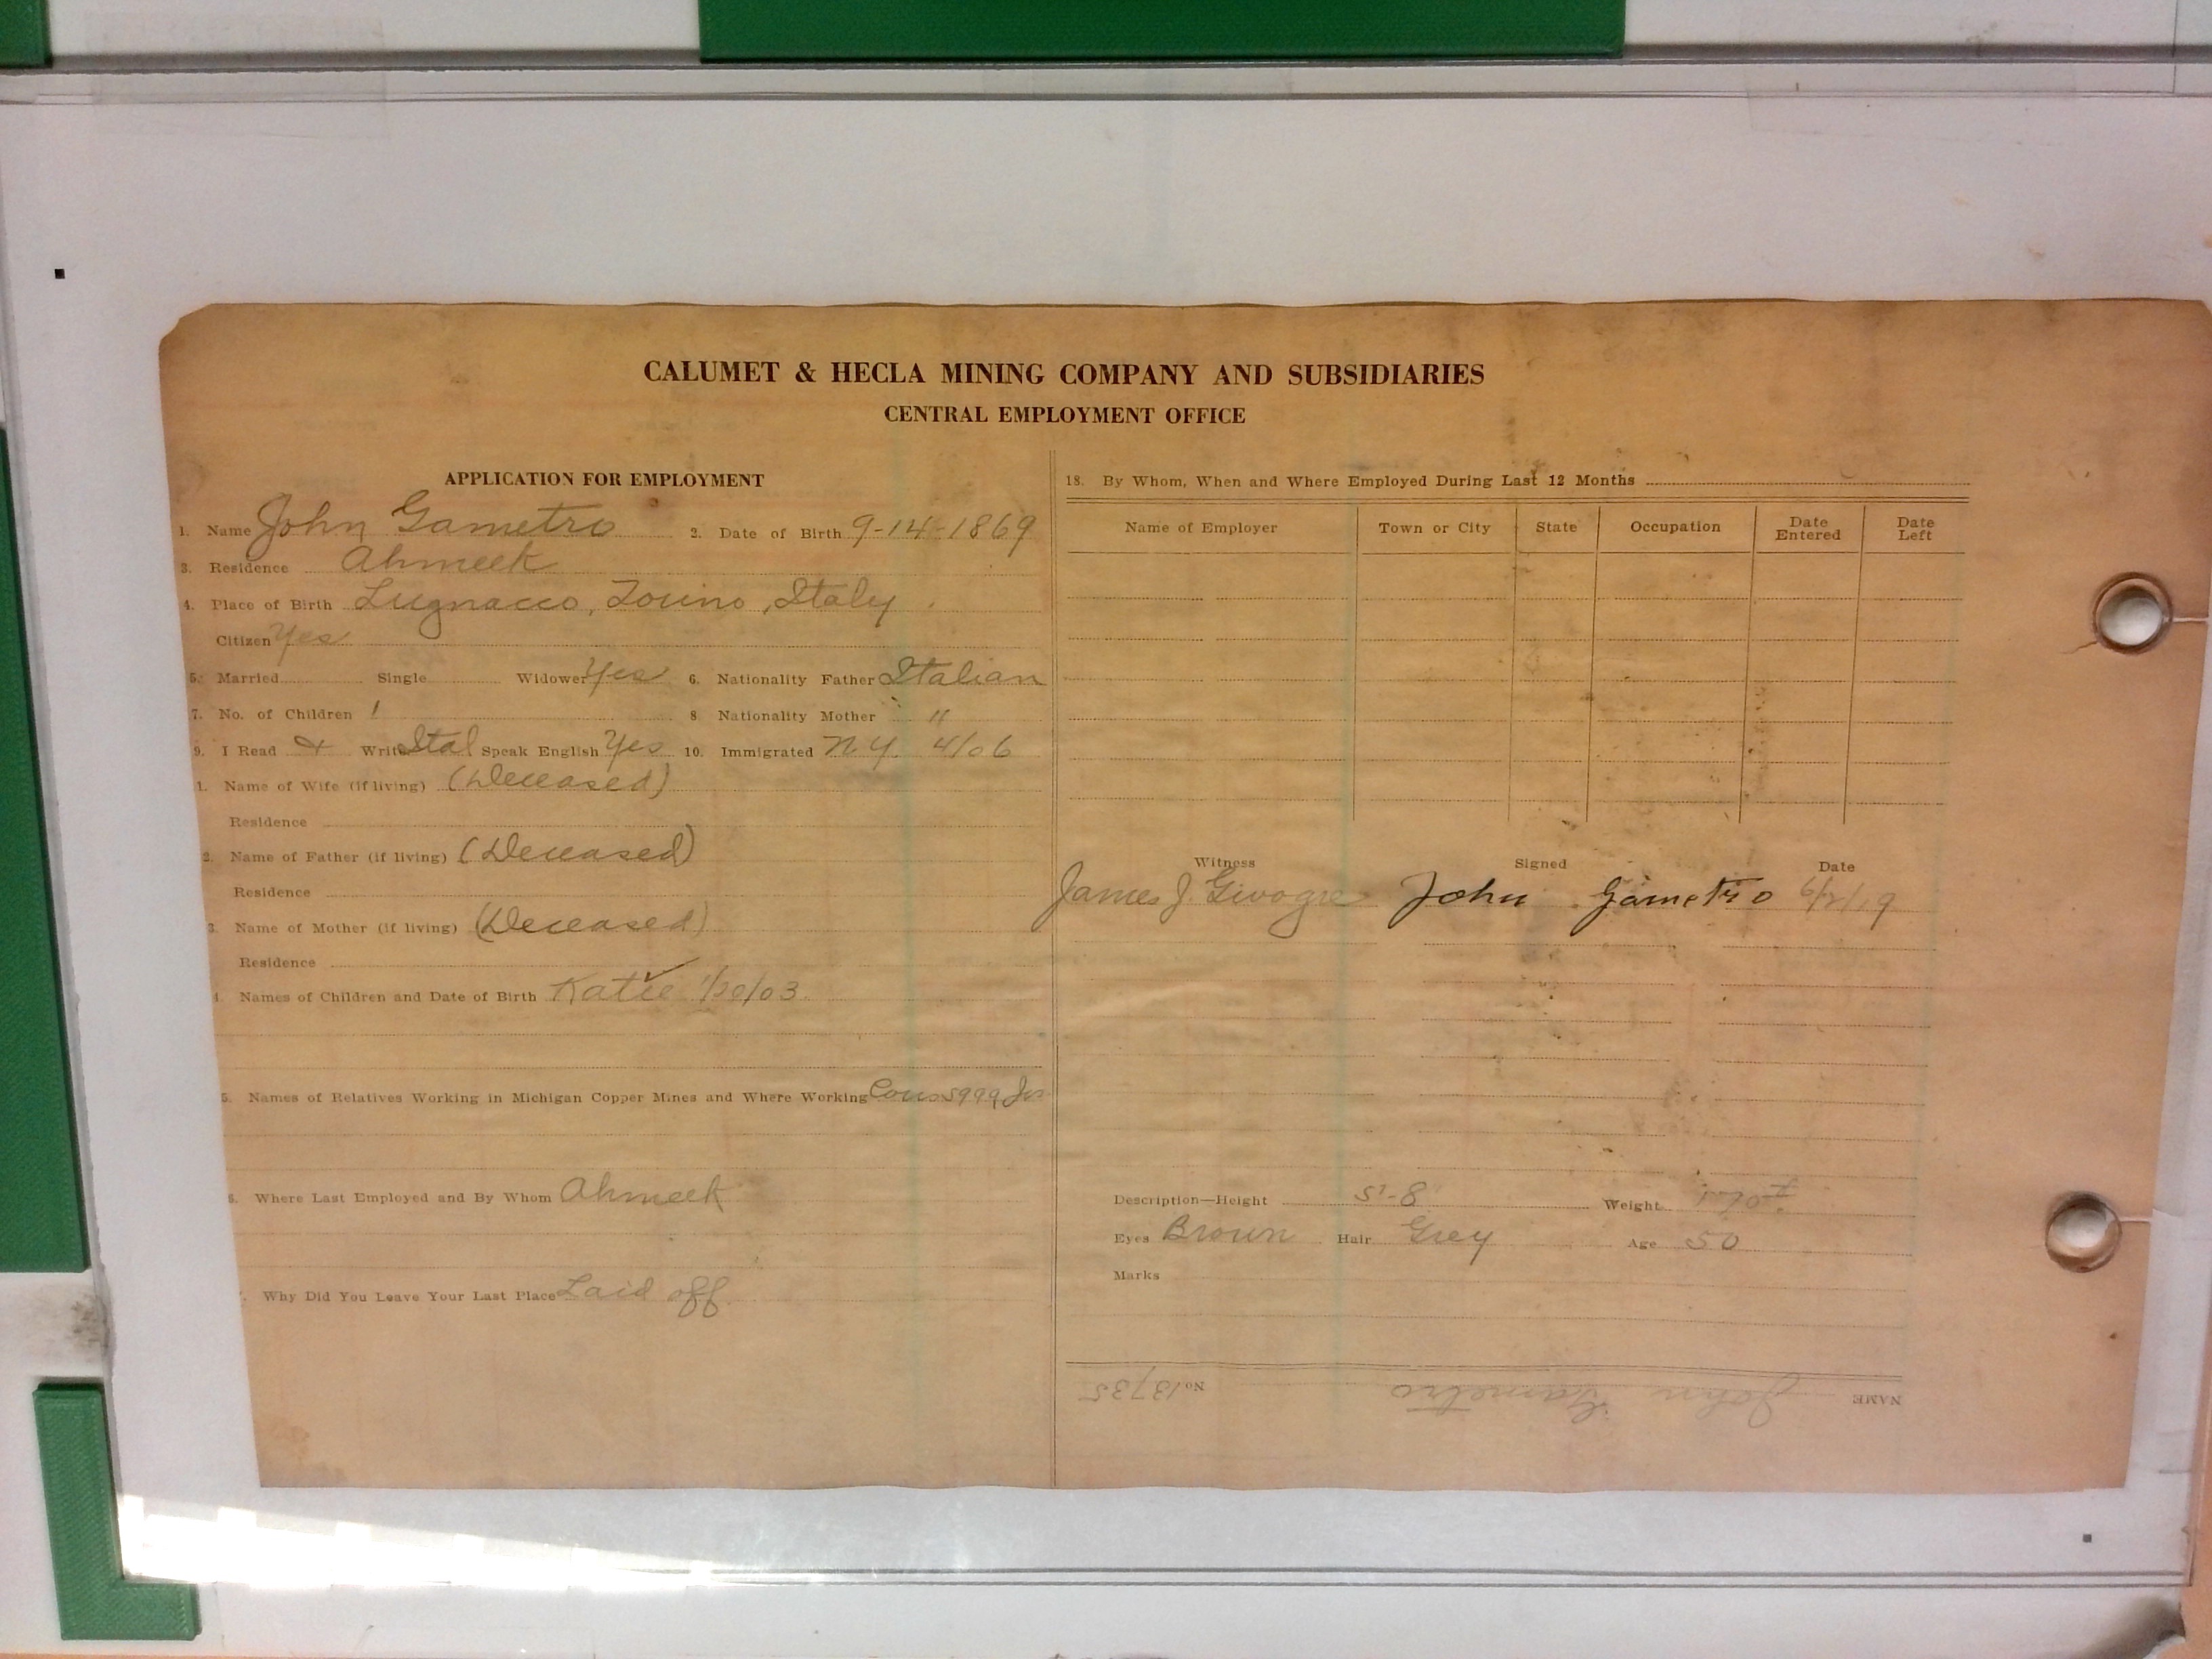 CALUMET & HECLA MINING COMPANY AND SUBSIDIARIES
CENTRAL EMPLOYMENT OFFICE
APPLICATION FOR EMPLOYMENT
1. Name John Gametro 2. Date of Birth 9-14-1869
3. Residence Ahmeek
4. Place of Birth Lugnacco, Torino, Italy
Citizen Yes
5. Married Single Widower Yes 6. Nationality Father Italian
7. No. of Children 1 8 Nationality Mother "
9. I Read & Write Ital Speak English Yes 10. Immigrated N.Y. 4/06
1. Name of Wife (if living) (Deceased)
Residence
2. Name of Father (if living) (Deceased)
Residence
3. Name of Mother (if living) (Deceased)
Residence
4. Names of Children and Date of Birth Katie 1/20/03
5. Names of Relatives Working in Michigan Copper Mines and Where Working Cous
6. Where Last Employed and By Whom Ahmeek
. Why Did You Leave Your Last Place Laid off
18. By Whom, When and Where Employed During Last 12 Months
Name of Employer Town or City State Occupation Date Entered Date Left
Witness Signed Date
James J. John Gametro 6/2/19
Description—Height 5'-8 Weight 170
Eyes Brown Hair Grey Age 50
Marks
NAME John Gametro No. 13735